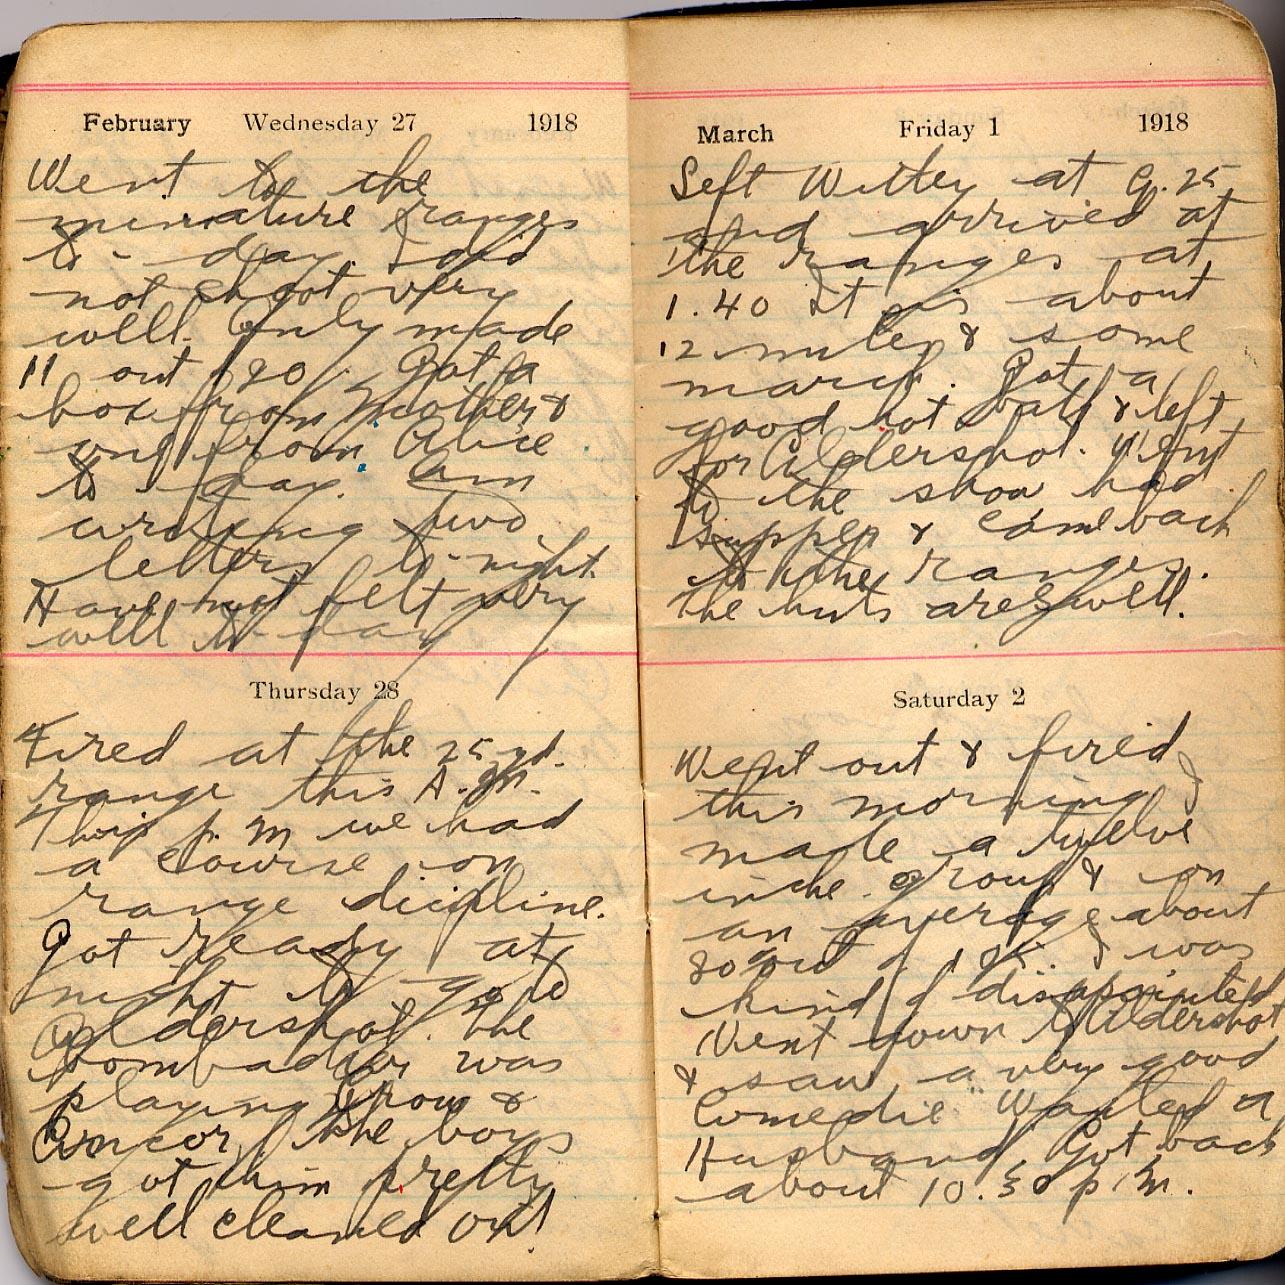 February Wednesday 27 1918
Went to the
miniature ranges
to-day. I did
not shoot very
well. Only made
11 out of 20. Got a
box from Mother &
one from Alice
to-day. Am
writing two
letters to-night.
Have not felt very
well to-day
Thursday 28
Fired at the 25 yd.
range this A.M.
This p.m we had
a course on
range dicipline.
Got ready at
night to go to
Aldershot. The
bombadier was
playing Crow &
Ancor, the boys
got him pretty
well cleaned out!
March Friday 1 1918
Left Witley at 9.25
and arrived at
the ranges at
1.40 It is about
12 miles & some
march. Got a
good hot bath & left
for Aldershot. Went
to the show had
supper & came back
to the ranges.
the huts are swell.
Saturday 2
Went out & fired
this morning I
made a twelve
inche group & on
an average about
80 out of I was
kind of disappointed
Went down to Aldershot
& saw a very good
Comedie "Wanted a
Husband" Got back
about 10.30 p.m.